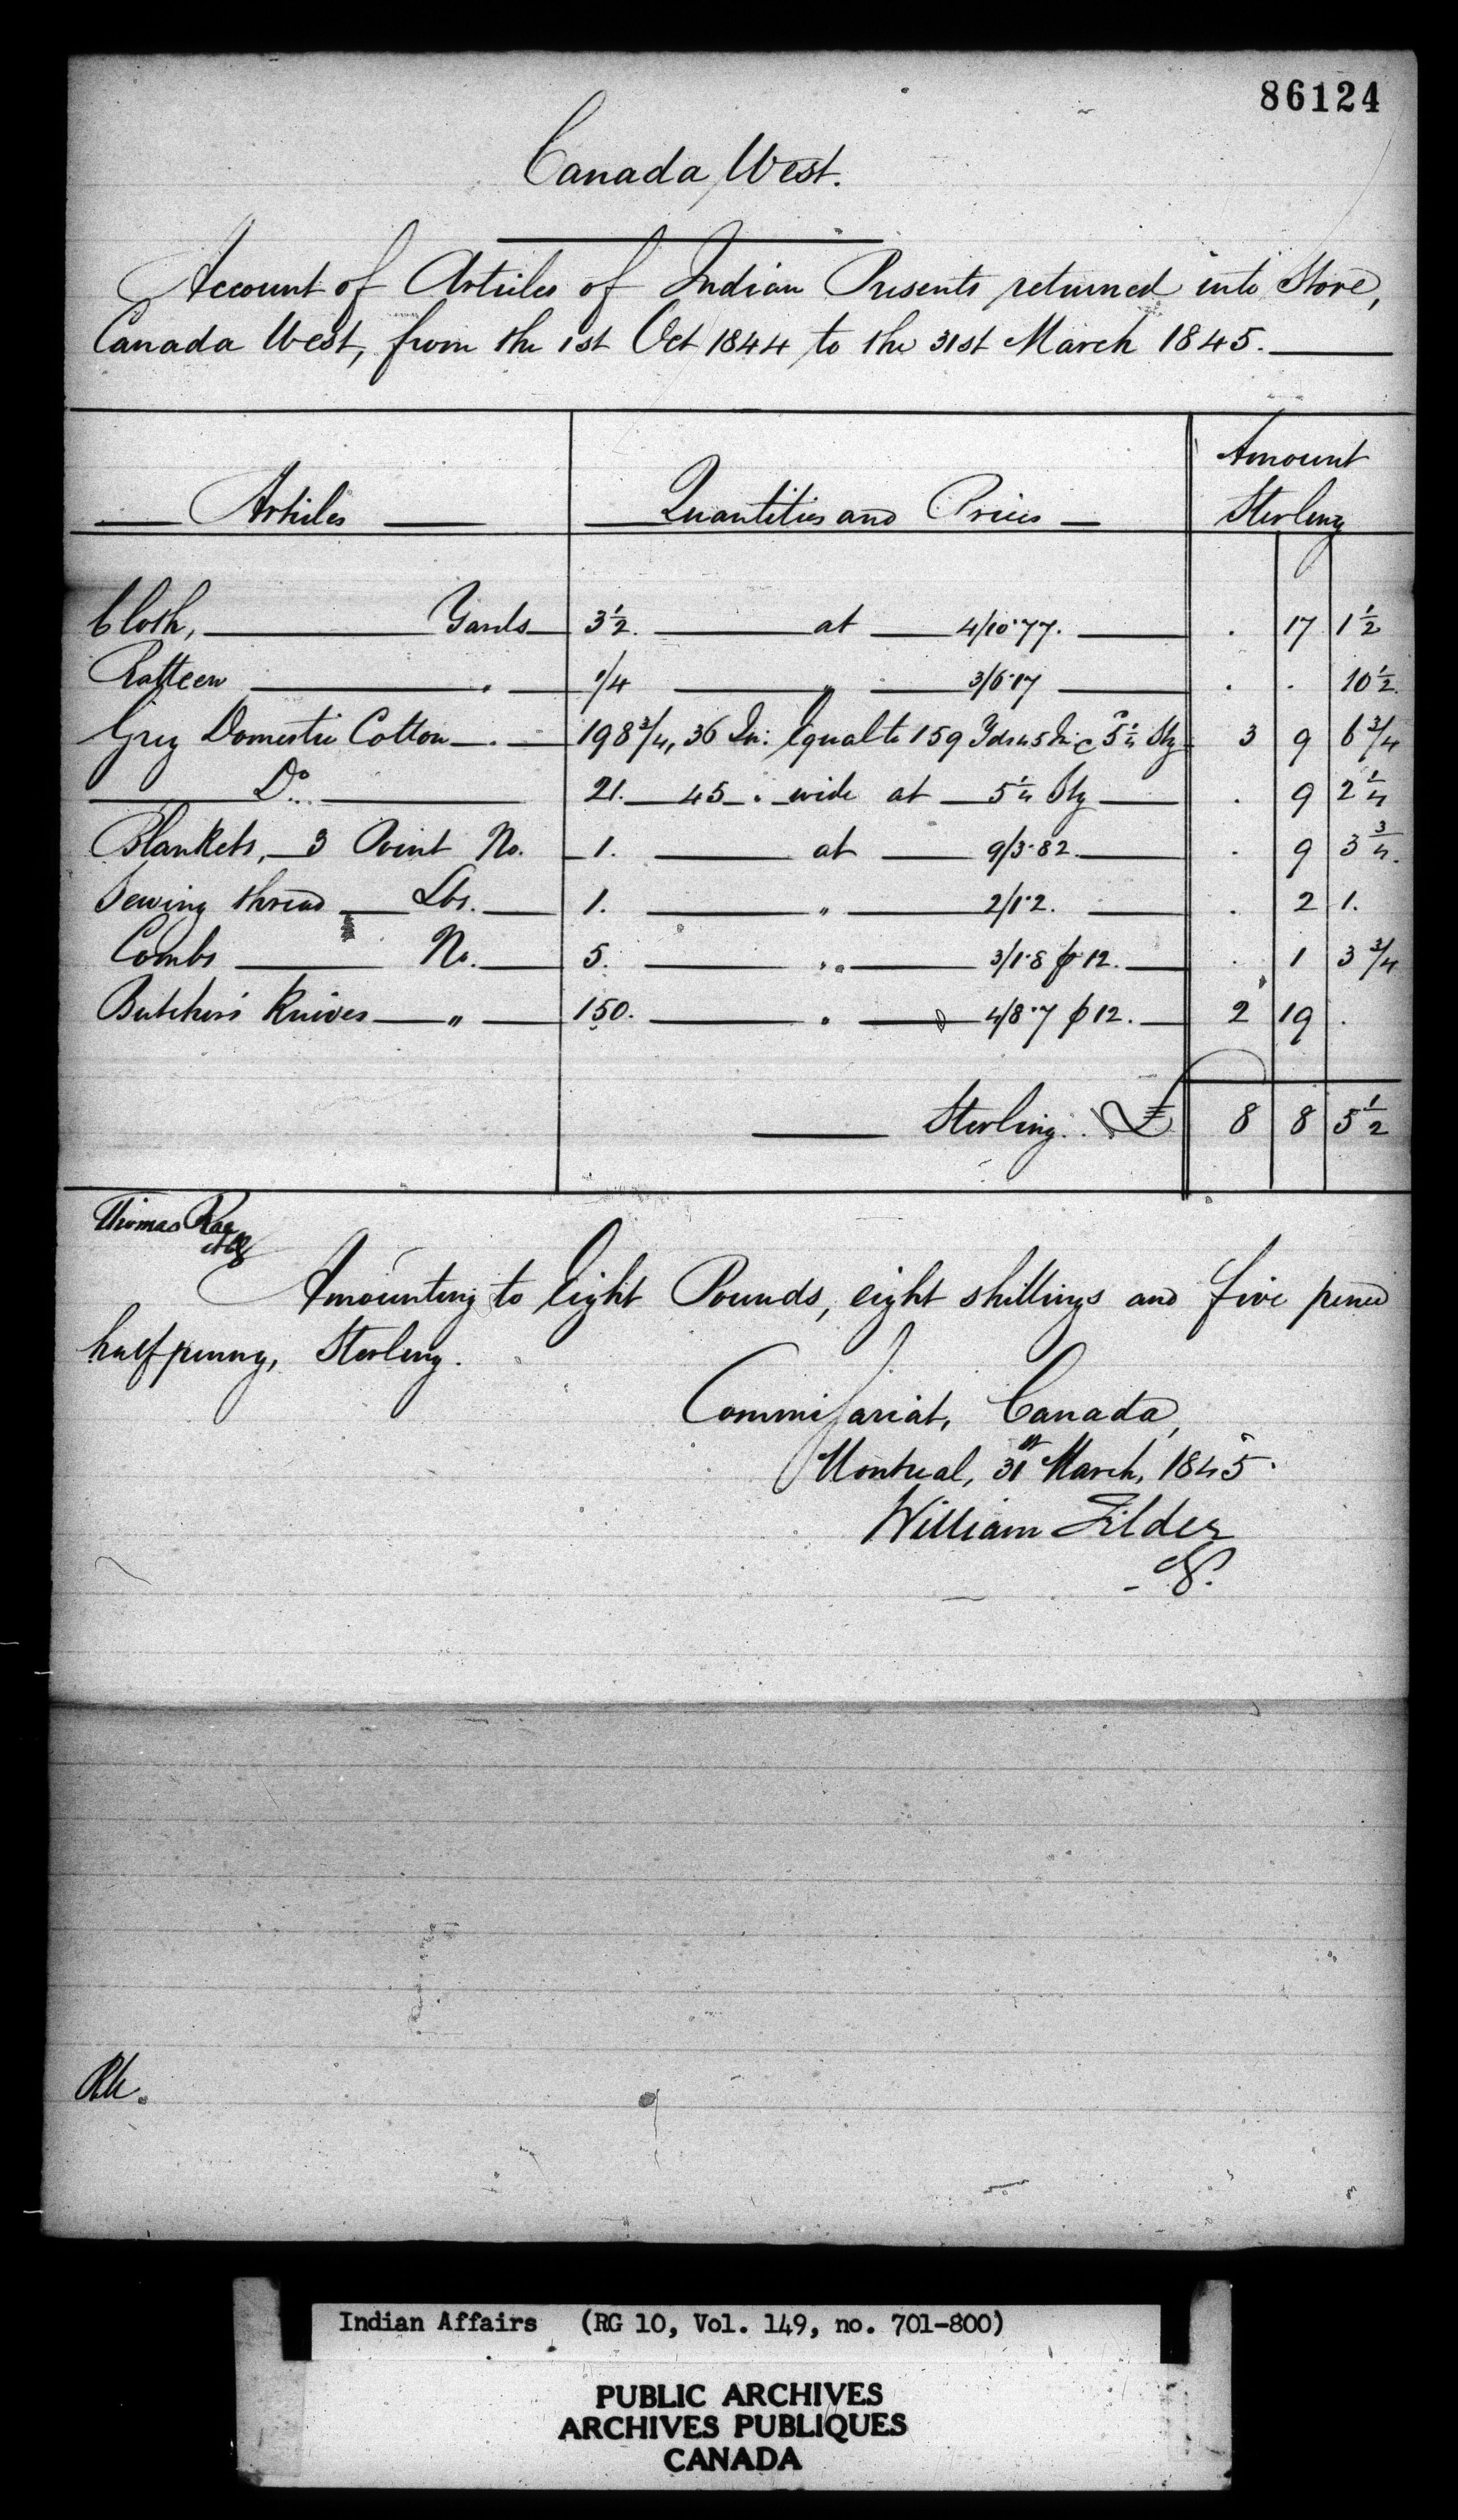 86124
Canada West.
Account of Articles of Indian Presents returned into Store,
Canada West, from the 1st Oct 1844 to the 31st March 1845.
Articles Quantities and Prices Amount Sterling
Cloth, Yards 3 1/2. at 4/10.77. . 17 1 1/2
Ratteen " 1/4 " 3/6.17 . . 10 1/2.
Grey Domestic Cotton " 198 3/4, 36 In: Equal to 159 Yds 45 In: @ 5 1/4 Stg 3 9 6 3/4
Do. 21. 45 " wide at 5 1/4 Stg . 9 2 1/4
Blankets, 3 Point No. 1. at 9/3.82. . 9 3 3/4.
Sewing thread Lbs. 1. " 2/1.2. . 2 1.
Combs No. 5. " 3/1.8 p 12. . 1 3 3/4
Butcher's Knives " 150. " 4/8.7 p 12. 2 19 .
Sterling. £ 8 8 5 1/2
Thomas Rae
Amounting to Eight Pounds, eight shillings and five pence
halfpenny, Sterling.
Commissariat, Canada,
Montreal, 31st March, 1845.
William Filder
Indian Affairs (RG 10, Vol. 149, no. 701-800)
PUBLIC ARCHIVES
ARCHIVES PUBLIQUES
CANADA